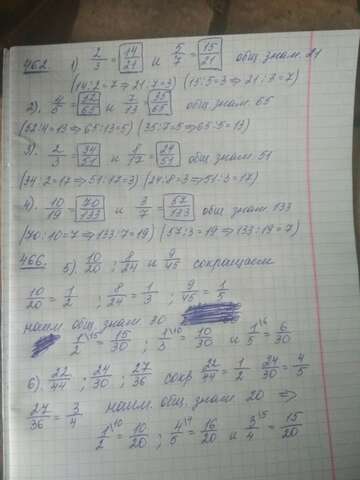 462. 1). 2/3 = 14/21 и 5/7 = 15/21 общ знам. 21
(14:2=7⇒21:7=3) (15:5=3⇒21:3=7)
2). 4/5 = 52/65 и 7/13 = 35/65 общ знам 65
(52:4=13⇒65:13=5) (35:7=5⇒65:5=13)
3). 2/3 = 34/51 и 8/17 = 24/51 общ знам. 51
(34:2=17⇒51:17=3) (24:8=3⇒51:3=17)
4). 10/19 = 70/133 и 3/7 = 57/133 общ знам 133
(70:10=7⇒133:7=19) (57:3=19⇒133:19=7)
466. 5). 10/20; 8/24 и 9/45 сокращаем
10/20 = 1/2 ; 8/24 = 1/3 ; 9/45 = 1/5
наим общ. знам 30
1/2\15 = 15/30 ; 1/3\10 = 10/30 и 1/5\6 = 6/30
6). 22/44 ; 24/30 ; 27/36 сокр 22/44 = 1/2 24/30 = 4/5
27/36 = 3/4 наим. общ. знам 20 ⇒
1/2\10 = 10/20 ; 4/5\4 = 16/20 и 3/4\5 = 15/20